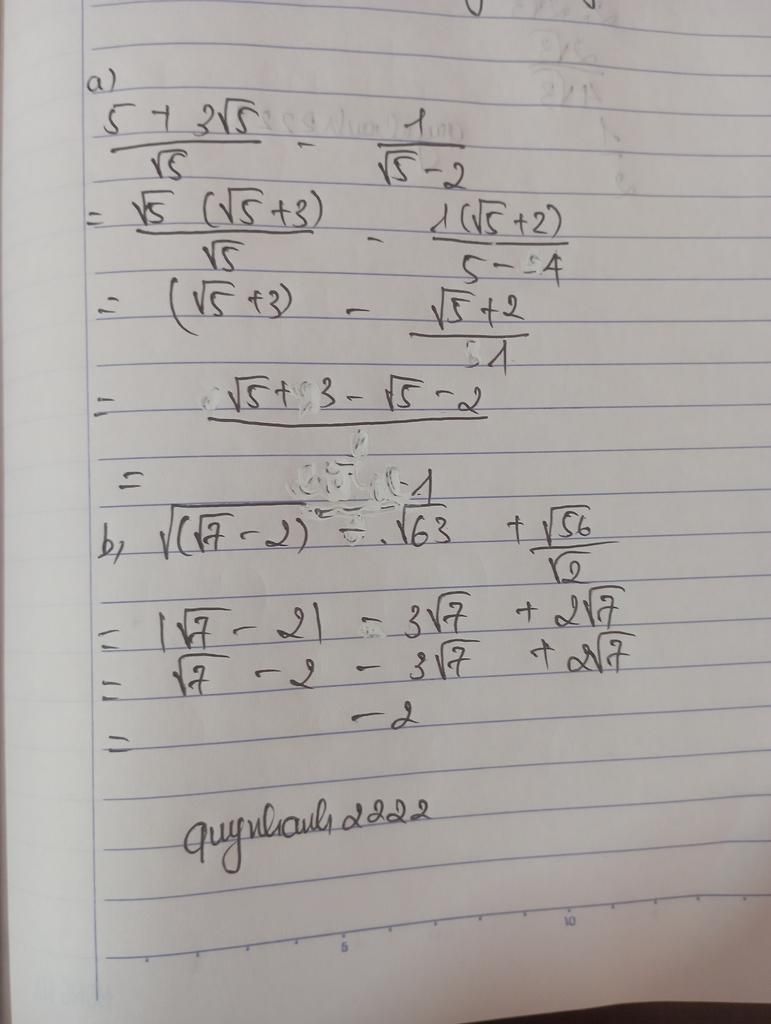 a)
5 + 3√5 / √5 - 1 / √5 - 2
= √5 (√5 + 3) / √5 - 1(√5 + 2) / 5 - 4
= (√5 + 3) - √5 + 2 / 1
= √5 + 3 - √5 - 2
= 1
b, √(√7 - 2)² - √63 + √56 / √2
= |√7 - 2| - 3√7 + 2√7
= √7 - 2 - 3√7 + 2√7
= - 2
quynhanh 2222
5 10